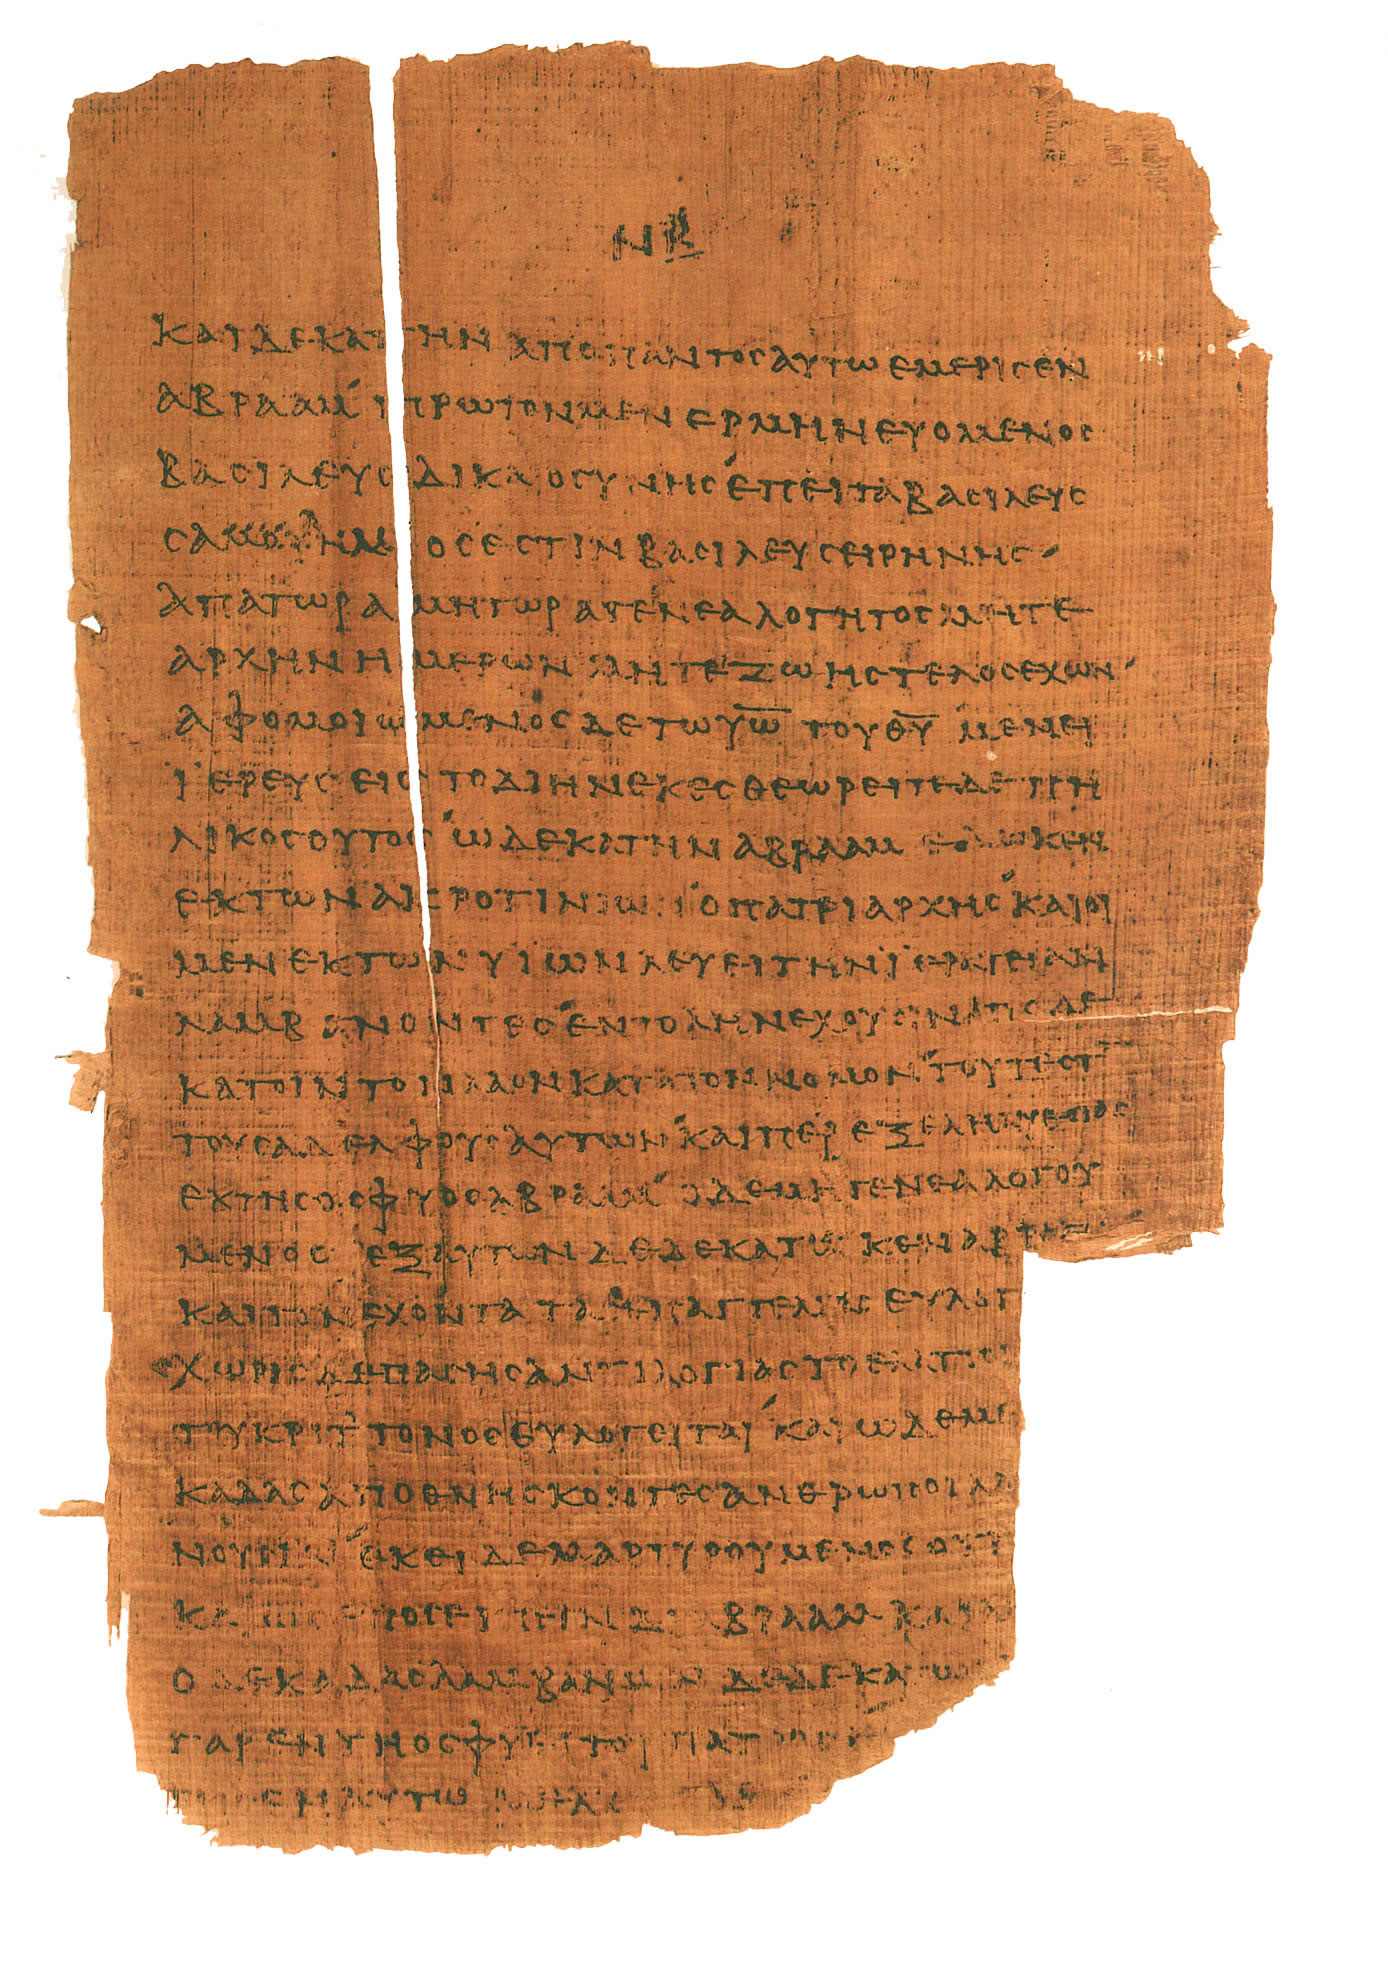 ΝΒ
ΚΑΙ ΔΕΚΑΤΗΝ ΑΠΟ ΠΑΝΤΟϹ ΑΥΤΩ ΕΜΕΡΙϹΕΝ
ΑΒΡΑΑΜ ΠΡΩΤΟΝ ΜΕΝ ΕΡΜΗΝΕΥΟΜΕΝΟϹ
ΒΑϹΙΛΕΥϹ ΔΙΚΑΙΟϹΥΝΗϹ ΕΠΕΙΤΑ ΒΑϹΙΛΕΥϹ
ΟϹ ΕϹΤΙΝ ΒΑϹΙΛΕΥϹ ΕΙΡΗΝΗϹ
ΑΠΑΤΩΡ ΑΜΗΤΩΡ ΑΓΕΝΕΑΛΟΓΗΤΟϹ ΜΗΤΕ
ΑΡΧΗΝ ΗΜΕΡΩΝ ΜΗΤΕ ΖΩΗϹ ΤΕΛΟϹ ΕΧΩΝ
ΑΦΟΜΟΙΩΜΕΝΟϹ ΔΕ ΤΩ Υ̅Ω̅ ΤΟΥ Θ̅Υ̅ ΜΕΝΕΙ
ΪΕΡΕΥϹ ΕΙϹ ΤΟ ΔΙΗΝΕΚΕϹ ΘΕΩΡΕΙΤΕ ΔΕ ΠΗ
ΛΙΚΟϹ ΟΥΤΟϹ Ω ΔΕΚΑΤΗΝ ΑΒΡΑΑΜ ΕΔΩΚΕΝ
ΕΚ ΤΩΝ ΑΚΡΟΓΙΝΙΩΝ Ο ΠΑΤΡΙΑΡΧΗϹ ΚΑΙ ΟΙ
ΜΕΝ ΕΚ ΤΩΝ ΥΙΩΝ ΛΕΥΕΙ ΤΗΝ ΪΕΡΑΤΕΙΑΝ
ΛΑΜΒΑΝΟΝΤΕϹ ΕΝΤΟΛΗΝ ΕΧΟΥϹΙΝ
ΤΟΝ ΛΑΟΝ ΚΑΤΑ ΤΟΝ ΝΟΜΟΝ ΤΟΥΤΕϹΤ
ΤΟΥϹ ΑΔΕΛΦΟΥϹ ΑΥΤΩΝ ΚΑΙΠΕΡ ΕΞΕΛΗΛΥΘΟΤΑϹ
ΕΚ ΤΗϹ ΟϹΦΥΟϹ ΑΒΡΑΑΜ Ο ΔΕ ΜΗ ΓΕΝΕΑΛΟΓΟΥ
ΜΕΝΟϹ ΕΞ ΑΥΤΩΝ ΔΕΔΕΚΑΤΩΚΕΝ ΑΒΡΑΑΜ
ΚΑΙ ΤΟΝ ΕΧΟΝΤΑ ΤΑϹ ΕΠΑΓΓΕΛΙΑϹ ΕΥΛΟΓ
ΧΩΡΙϹ ΔΕ ΠΑϹΗϹ ΑΝΤΙΛΟΓΙΑϹ ΤΟ ΕΛΑΤΤΟΝ
ΚΡΙΤΤΟΝΟϹ ΕΥΛΟΓΕΙΤΑΙ ΚΑΙ ΩΔΕ ΜΕ
ΑΠΟΘΝΗϹΚΟΝΤΕϹ ΑΝΘΡΩΠΟΙ ΛΑ
ΕΚΕΙ ΔΕ ΜΑΡΤΥΡΟΥΜΕΝΟϹ ΟΤΙ
ΕΠΟϹ ΕΙΠΕΙΝ ΑΒΡΑΑΜ ΚΑΙ
Ο ΔΕΚΑΔΑϹ ΛΑΜΒΑΝΩΝ ΔΕΔΕΚΑΤΩ
ΓΑΡ ΕΝ ΤΗ ΟϹΦΥΙ ΤΟΥ ΠΑΤΡΟϹ
ΑΥΤΩ